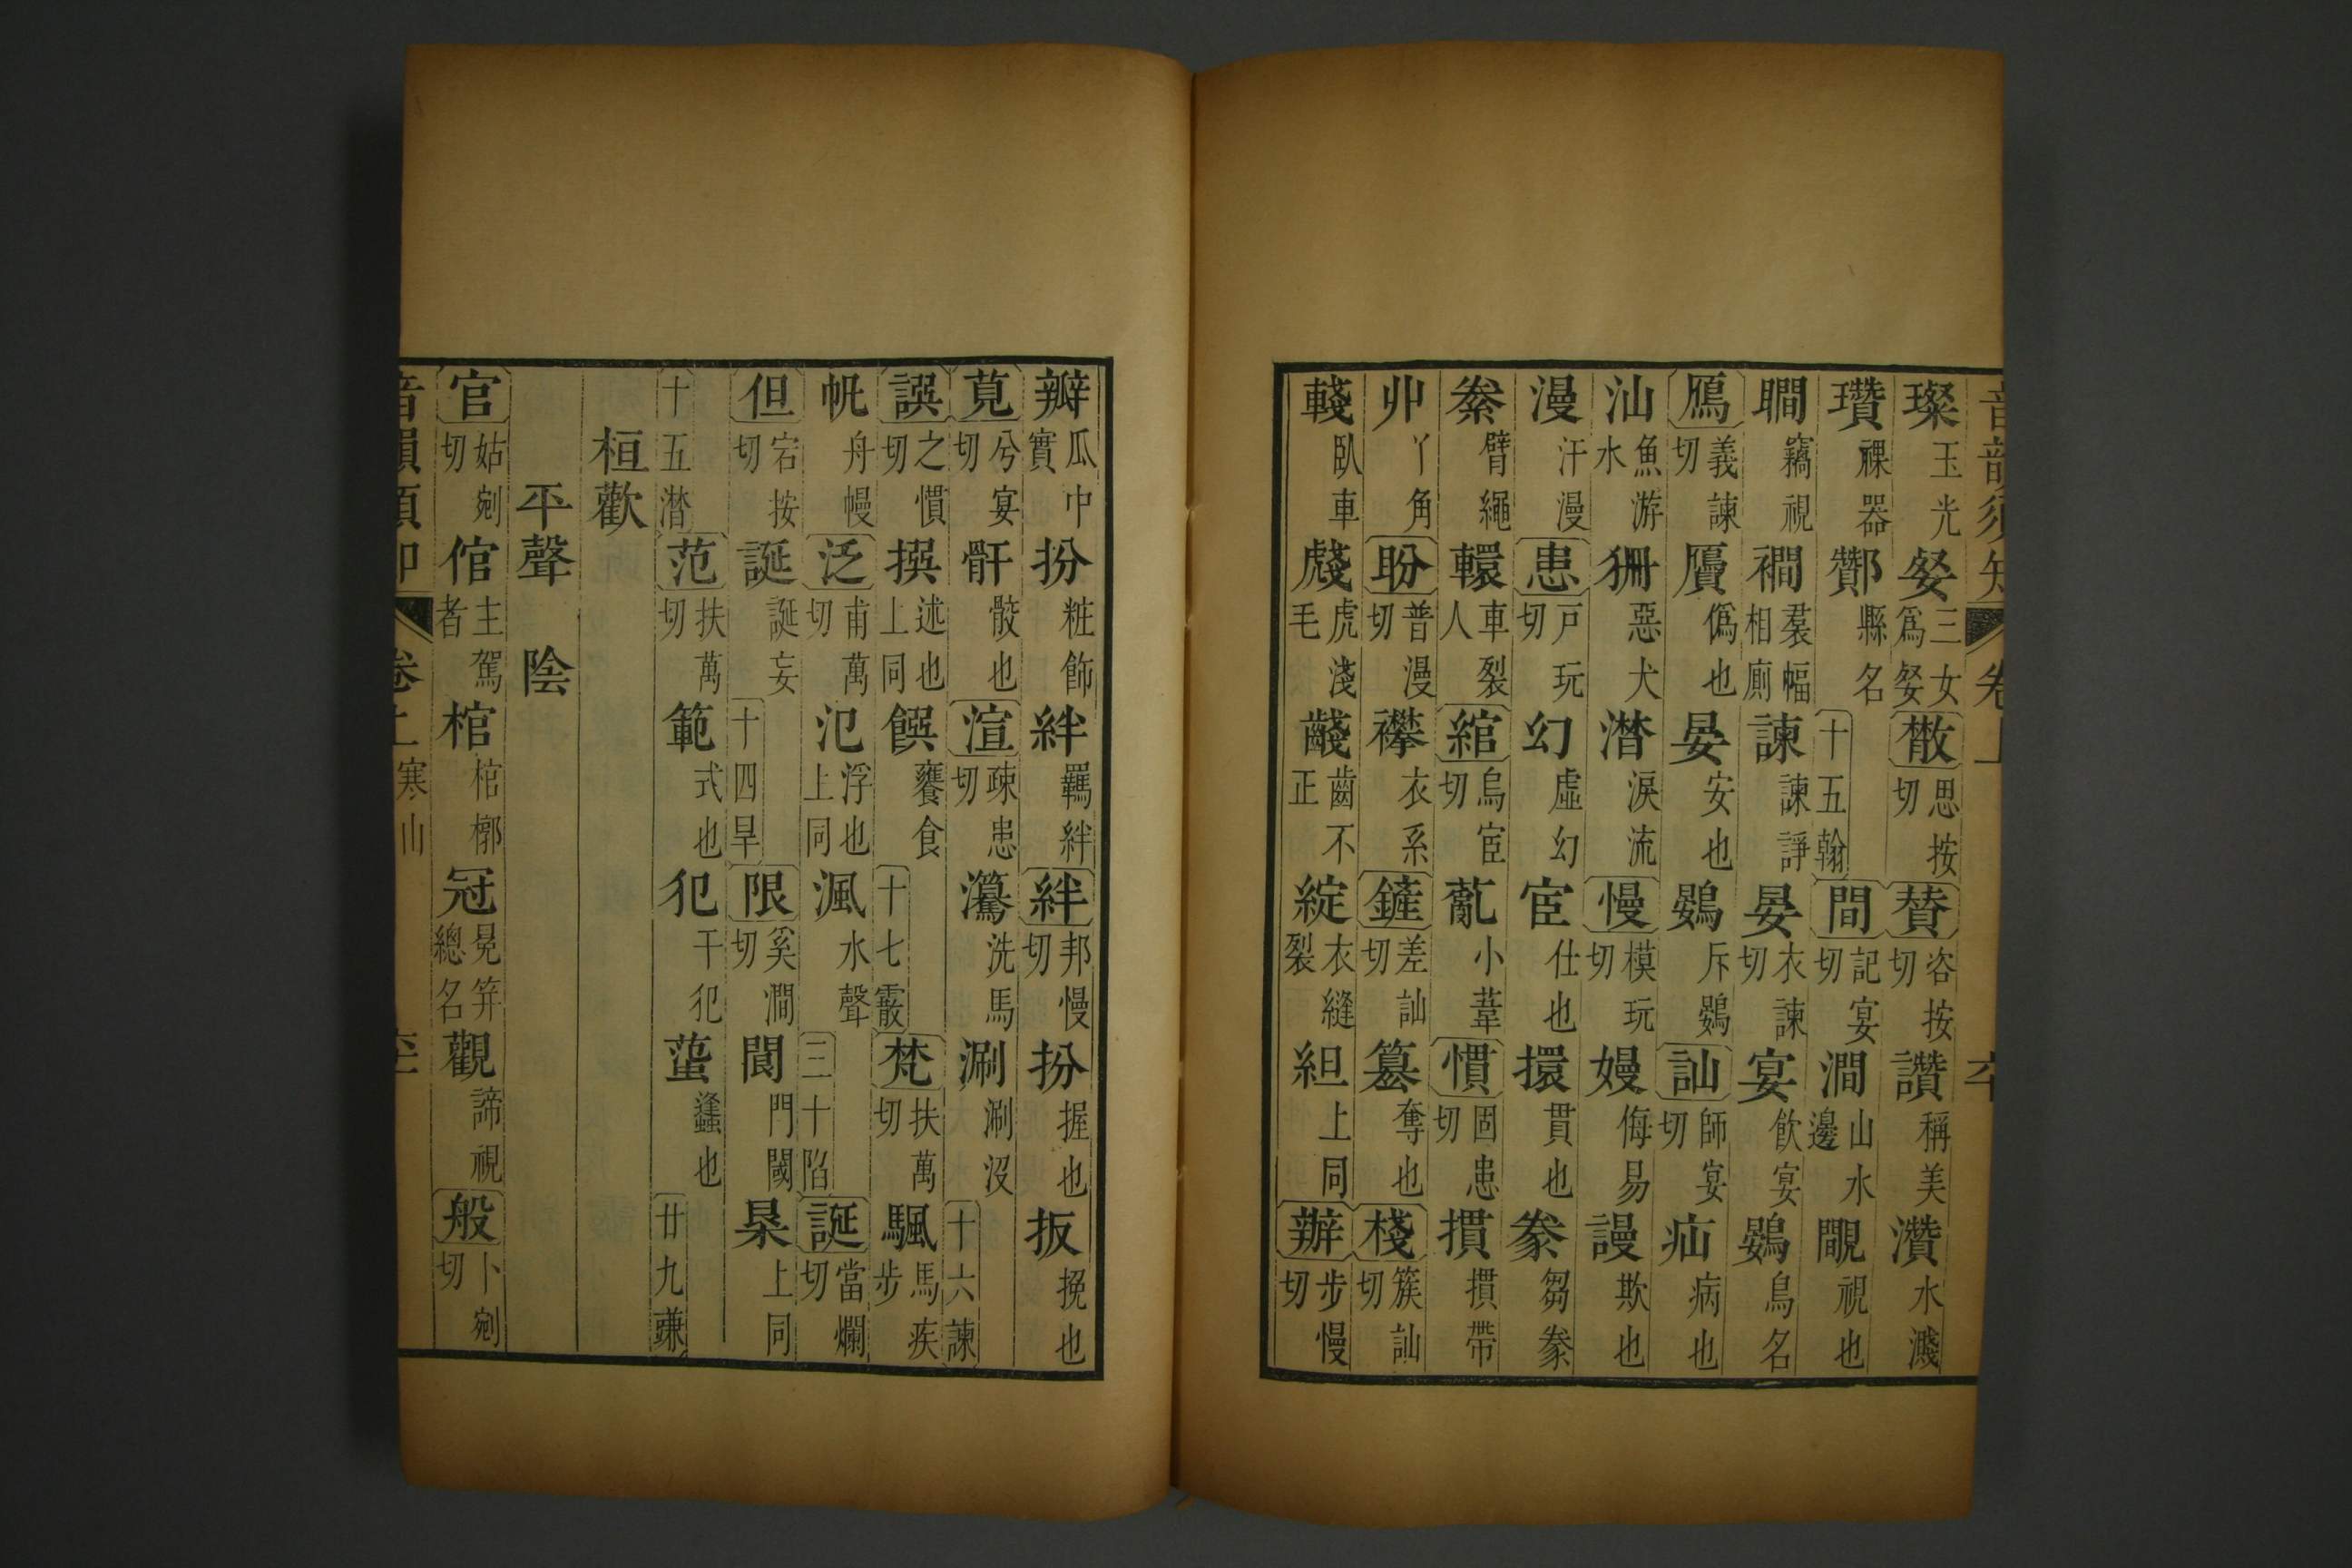 璨玉光㛑三女爲㛑㪚思按切賛咨按切讚稱美灒水濺
瓚祼器酇縣名十五翰間記宴切澗山水邊覵視也
瞯竊視襇羣幅相廁諫諫諍晏衣諫切宴飲宴鷃鳥名
鴈義諫切贗僞也晏安也鷃斥鷃訕師宴切疝病也
汕魚游水狦惡犬潸淚流慢模玩切嫚侮易謾欺也
漫汗漫患戸玩切幻虛幻宦仕也擐貫也豢芻豢
絭臂繩轘車裂人綰烏宦切薍小葦慣固患切摜摜帶
丱丫角盼普漫切襻衣系鏟差訕切篡奪也棧簇訕切
輚臥車虥虎淺毛齴齒不正綻衣縫裂組上同辦步慢切
瓣瓜中實扮粧飾絆羈絆絆邦慢切扮握也扳挽也
莧兮宴切骭骹也渲疎患切灟洗馬涮涮沒十六諫
譔之慣切撰述也上同饌饔食十七霰梵扶萬切颿馬疾步
帆舟幔泛甫萬切氾浮也上同渢水聲三十陷誕當爛切
但宕按切誕誕妄十四旱限奚澗切閬門閾㫩上同
十五潸范扶萬切範式也犯干犯䖟蠭也廿九豏
桓歡
平聲 陰
官姑剜切倌主駕者棺棺槨冠冕笄總名觀諦視般卜剜切
音韻須知 卷上 寒山